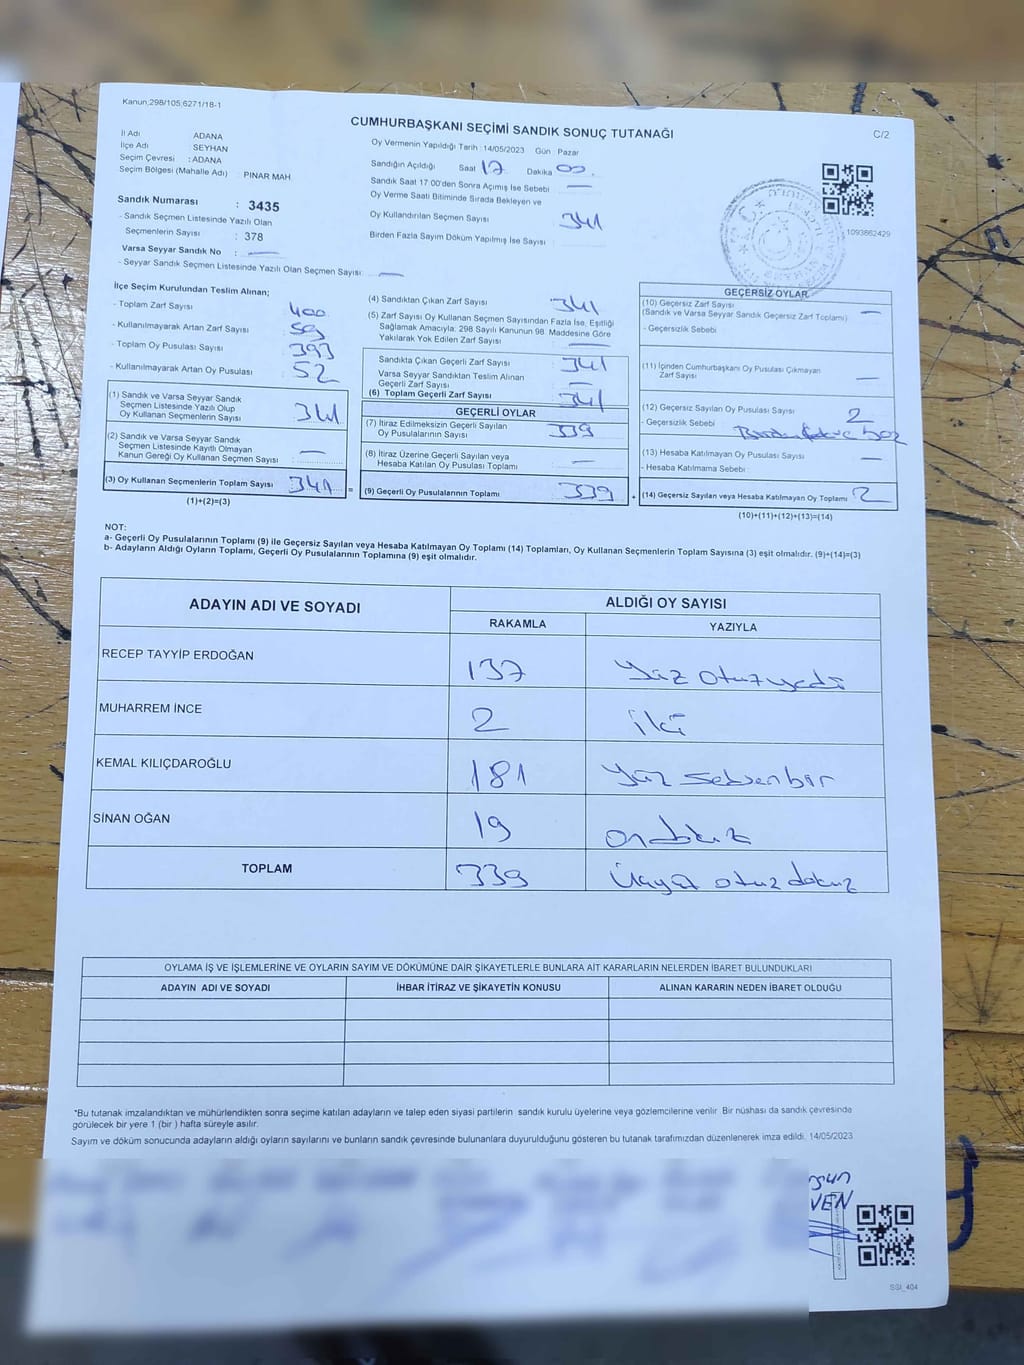 Kanun;298/105;6271/18-1
CUMHURBAŞKANI SEÇİMİ SANDIK SONUÇ TUTANAĞI
C/2
İl Adı ADANA
İlçe Adı SEYHAN
Seçim Çevresi : ADANA
Seçim Bölgesi (Mahalle Adı) : PINAR MAH
Sandık Numarası : 3435
- Sandık Seçmen Listesinde Yazılı Olan
Seçmenlerin Sayısı : 378
Varsa Seyyar Sandık No : —
- Seyyar Sandık Seçmen Listesinde Yazılı Olan Seçmen Sayısı: —
Oy Vermenin Yapıldığı Tarih : 14/05/2023 Gün : Pazar
Sandığın Açıldığı Saat 17 Dakika 00.
Sandık Saat 17:00'den Sonra Açımış İse Sebebi —
Oy Verme Saati Bitiminde Sırada Bekleyen ve
Oy Kullandırılan Seçmen Sayısı 341
Birden Fazla Sayım Döküm Yapılmış İse Sayısı
1093862429
İlçe Seçim Kurulundan Teslim Alınan;
- Toplam Zarf Sayısı : 400
- Kullanılmayarak Artan Zarf Sayısı : 59
- Toplam Oy Pusulası Sayısı : 393
- Kullanılmayarak Artan Oy Pusulası : 52
(1) Sandık ve Varsa Seyyar Sandık
Seçmen Listesinde Yazılı Olup
Oy Kullanan Seçmenlerin Sayısı : 341
(2) Sandık ve Varsa Seyyar Sandık
Seçmen Listesinde Kayıtlı Olmayan
Kanun Gereği Oy Kullanan Seçmen Sayısı : —
(3) Oy Kullanan Seçmenlerin Toplam Sayısı : 341 =
(1)+(2)=(3)
(4) Sandıktan Çıkan Zarf Sayısı : 341
(5) Zarf Sayısı Oy Kullanan Seçmen Sayısından Fazla İse, Eşitliği
Sağlamak Amacıyla; 298 Sayılı Kanunun 98. Maddesine Göre
Yakılarak Yok Edilen Zarf Sayısı : —
Sandıkta Çıkan Geçerli Zarf Sayısı : 341
Varsa Seyyar Sandıktan Teslim Alınan
Geçerli Zarf Sayısı : —
(6) Toplam Geçerli Zarf Sayısı : 341
GEÇERLİ OYLAR
(7) İtiraz Edilmeksizin Geçerli Sayılan
Oy Pusulalarının Sayısı : 339
(8) İtiraz Üzerine Geçerli Sayılan veya
Hesaba Katılan Oy Pusulası Toplamı : —
(9) Geçerli Oy Pusulalarının Toplamı : 339 +
GEÇERSİZ OYLAR
(10) Geçersiz Zarf Sayısı
(Sandık ve Varsa Seyyar Sandık Geçersiz Zarf Toplamı) : —
- Geçersizlik Sebebi :
(11) İçinden Cumhurbaşkanı Oy Pusulası Çıkmayan
Zarf Sayısı : —
(12) Geçersiz Sayılan Oy Pusulası Sayısı : 2
- Geçersizlik Sebebi :
(13) Hesaba Katılmayan Oy Pusulası Sayısı : —
- Hesaba Katılmama Sebebi :
(14) Geçersiz Sayılan veya Hesaba Katılmayan Oy Toplamı : 2
(10)+(11)+(12)+(13)=(14)
NOT:
a- Geçerli Oy Pusulalarının Toplamı (9) ile Geçersiz Sayılan veya Hesaba Katılmayan Oy Toplamı (14) Toplamları, Oy Kullanan Seçmenlerin Toplam Sayısına (3) eşit olmalıdır. (9)+(14)=(3)
b- Adayların Aldığı Oyların Toplamı, Geçerli Oy Pusulalarının Toplamına (9) eşit olmalıdır.
ADAYIN ADI VE SOYADI ALDIĞI OY SAYISI
RAKAMLA YAZIYLA
RECEP TAYYİP ERDOĞAN 137 Yüz otuz yedi
MUHARREM İNCE 2 iki
KEMAL KILIÇDAROĞLU 181 Yüz seksen bir
SİNAN OĞAN 19 on dokuz
TOPLAM 339 üçyüz otuz dokuz
OYLAMA İŞ VE İŞLEMLERİNE VE OYLARIN SAYIM VE DÖKÜMÜNE DAİR ŞİKAYETLERLE BUNLARA AİT KARARLARIN NELERDEN İBARET BULUNDUKLARI
ADAYIN ADI VE SOYADI İHBAR İTİRAZ VE ŞİKAYETİN KONUSU ALINAN KARARIN NEDEN İBARET OLDUĞU
*Bu tutanak imzalandıktan ve mühürlendikten sonra seçime katılan adayların ve talep eden siyasi partilerin sandık kurulu üyelerine veya gözlemcilerine verilir. Bir nüshası da sandık çevresinde
görülecek bir yere 1 (bir ) hafta süreyle asılır.
Sayım ve döküm sonucunda adayların aldığı oyların sayılarını ve bunların sandık çevresinde bulunanlara duyurulduğunu gösteren bu tutanak tarafımızdan düzenlenerek imza edildi. 14/05/2023
SSI_404